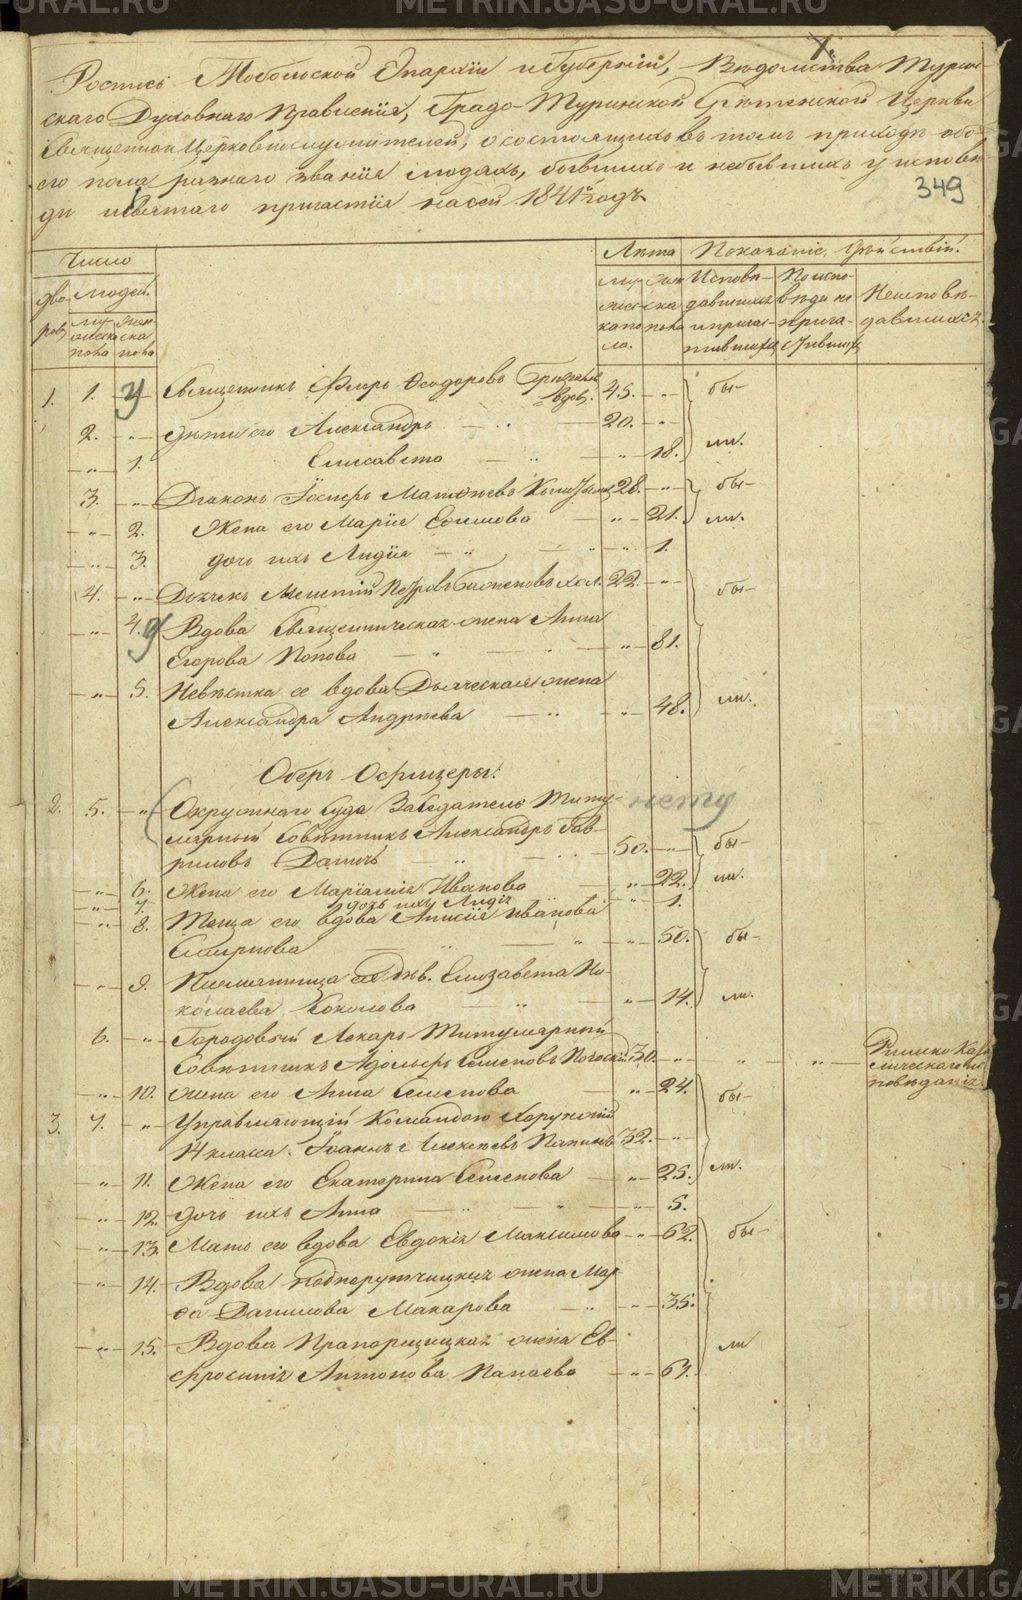 METRIKI.GASO-URAL.RU
Роспись Тобольской Епархіи и Губерніи, Вѣдомства Турин-
скаго Духовнаго Правленія, Градо-Туринской Срѣтенской Церкви
Священноицерковнослужителей, о состоящихъ въ томъ приходѣ обо-
его пола разнаго званія людяхъ, бывшихъ и небывшихъ у исповѣ-
ди и Святаго причастія на сей 1841й годъ
349
Число
дво-
ровъ
людей.
муж
еска
пола
жен
ска
пола
Лѣта
му-
жес-
ка по
ла.
жен
ска
пола
Показаніе дѣйствій.
Исповѣ-
давшихся
и причас-
тившихся
По испо-
вѣди не
прича-
стивших
Неисповѣ-
давшихся.
1. 1. Священникъ Флоръ Ѳеодоровъ вдов. 45. бы-
2. дѣти его Александръ 20.
1. Елисавета 18. ли.
3. Діаконъ Іосифъ Матѳѣевъ 28. бы-
2. Жена его Марія Ефимова 21. ли.
3. дочь ихъ Лидія 1.
4. Дьячекъ Мелетій Петровъ хол. 22. бы-
4. Вдова Священническая жена Анна
Егорова Попова 81.
5. Невѣстка ее вдова Дьяческая жена
Александра Андреева 48. ли.
Оберъ Офицеры:
2. 5. Окружнаго Суда Засѣдатель Титу- нету
лярный Совѣтникъ Александръ Гав-
риловъ 50. бы-
6. Жена его Маріамія Иванова 22. ли.
7. дочь ихъ Лидія 1.
8. Теща его вдова Анисія Иванова
Смирнова 50. бы-
9. Племянница дѣв. Елизавета Ни-
колаева Соколова 14. ли.
6. Городовый Лекарь Титулярный
Совѣтникъ Адольфъ Семеновъ 30. Римско Като
лическаго ис
повѣданія
10. жена его Анна Семенова 24. бы-
3. 7. Управляющій Командою Хорунжій
14 класса Іоаннъ Алексѣевъ 32.
11. Жена его Екатерина Семенова 25. ли.
12. дочь ихъ Анна 5.
13. Мать его вдова Евдокія Максимова 62. бы-
14. Вдова подпоручицкая жена Мар-
ѳа Данилова Макарова 35.
15. Вдова Прапорщицкая жена Ев-
фросинія Антонова Папаева 67. ли